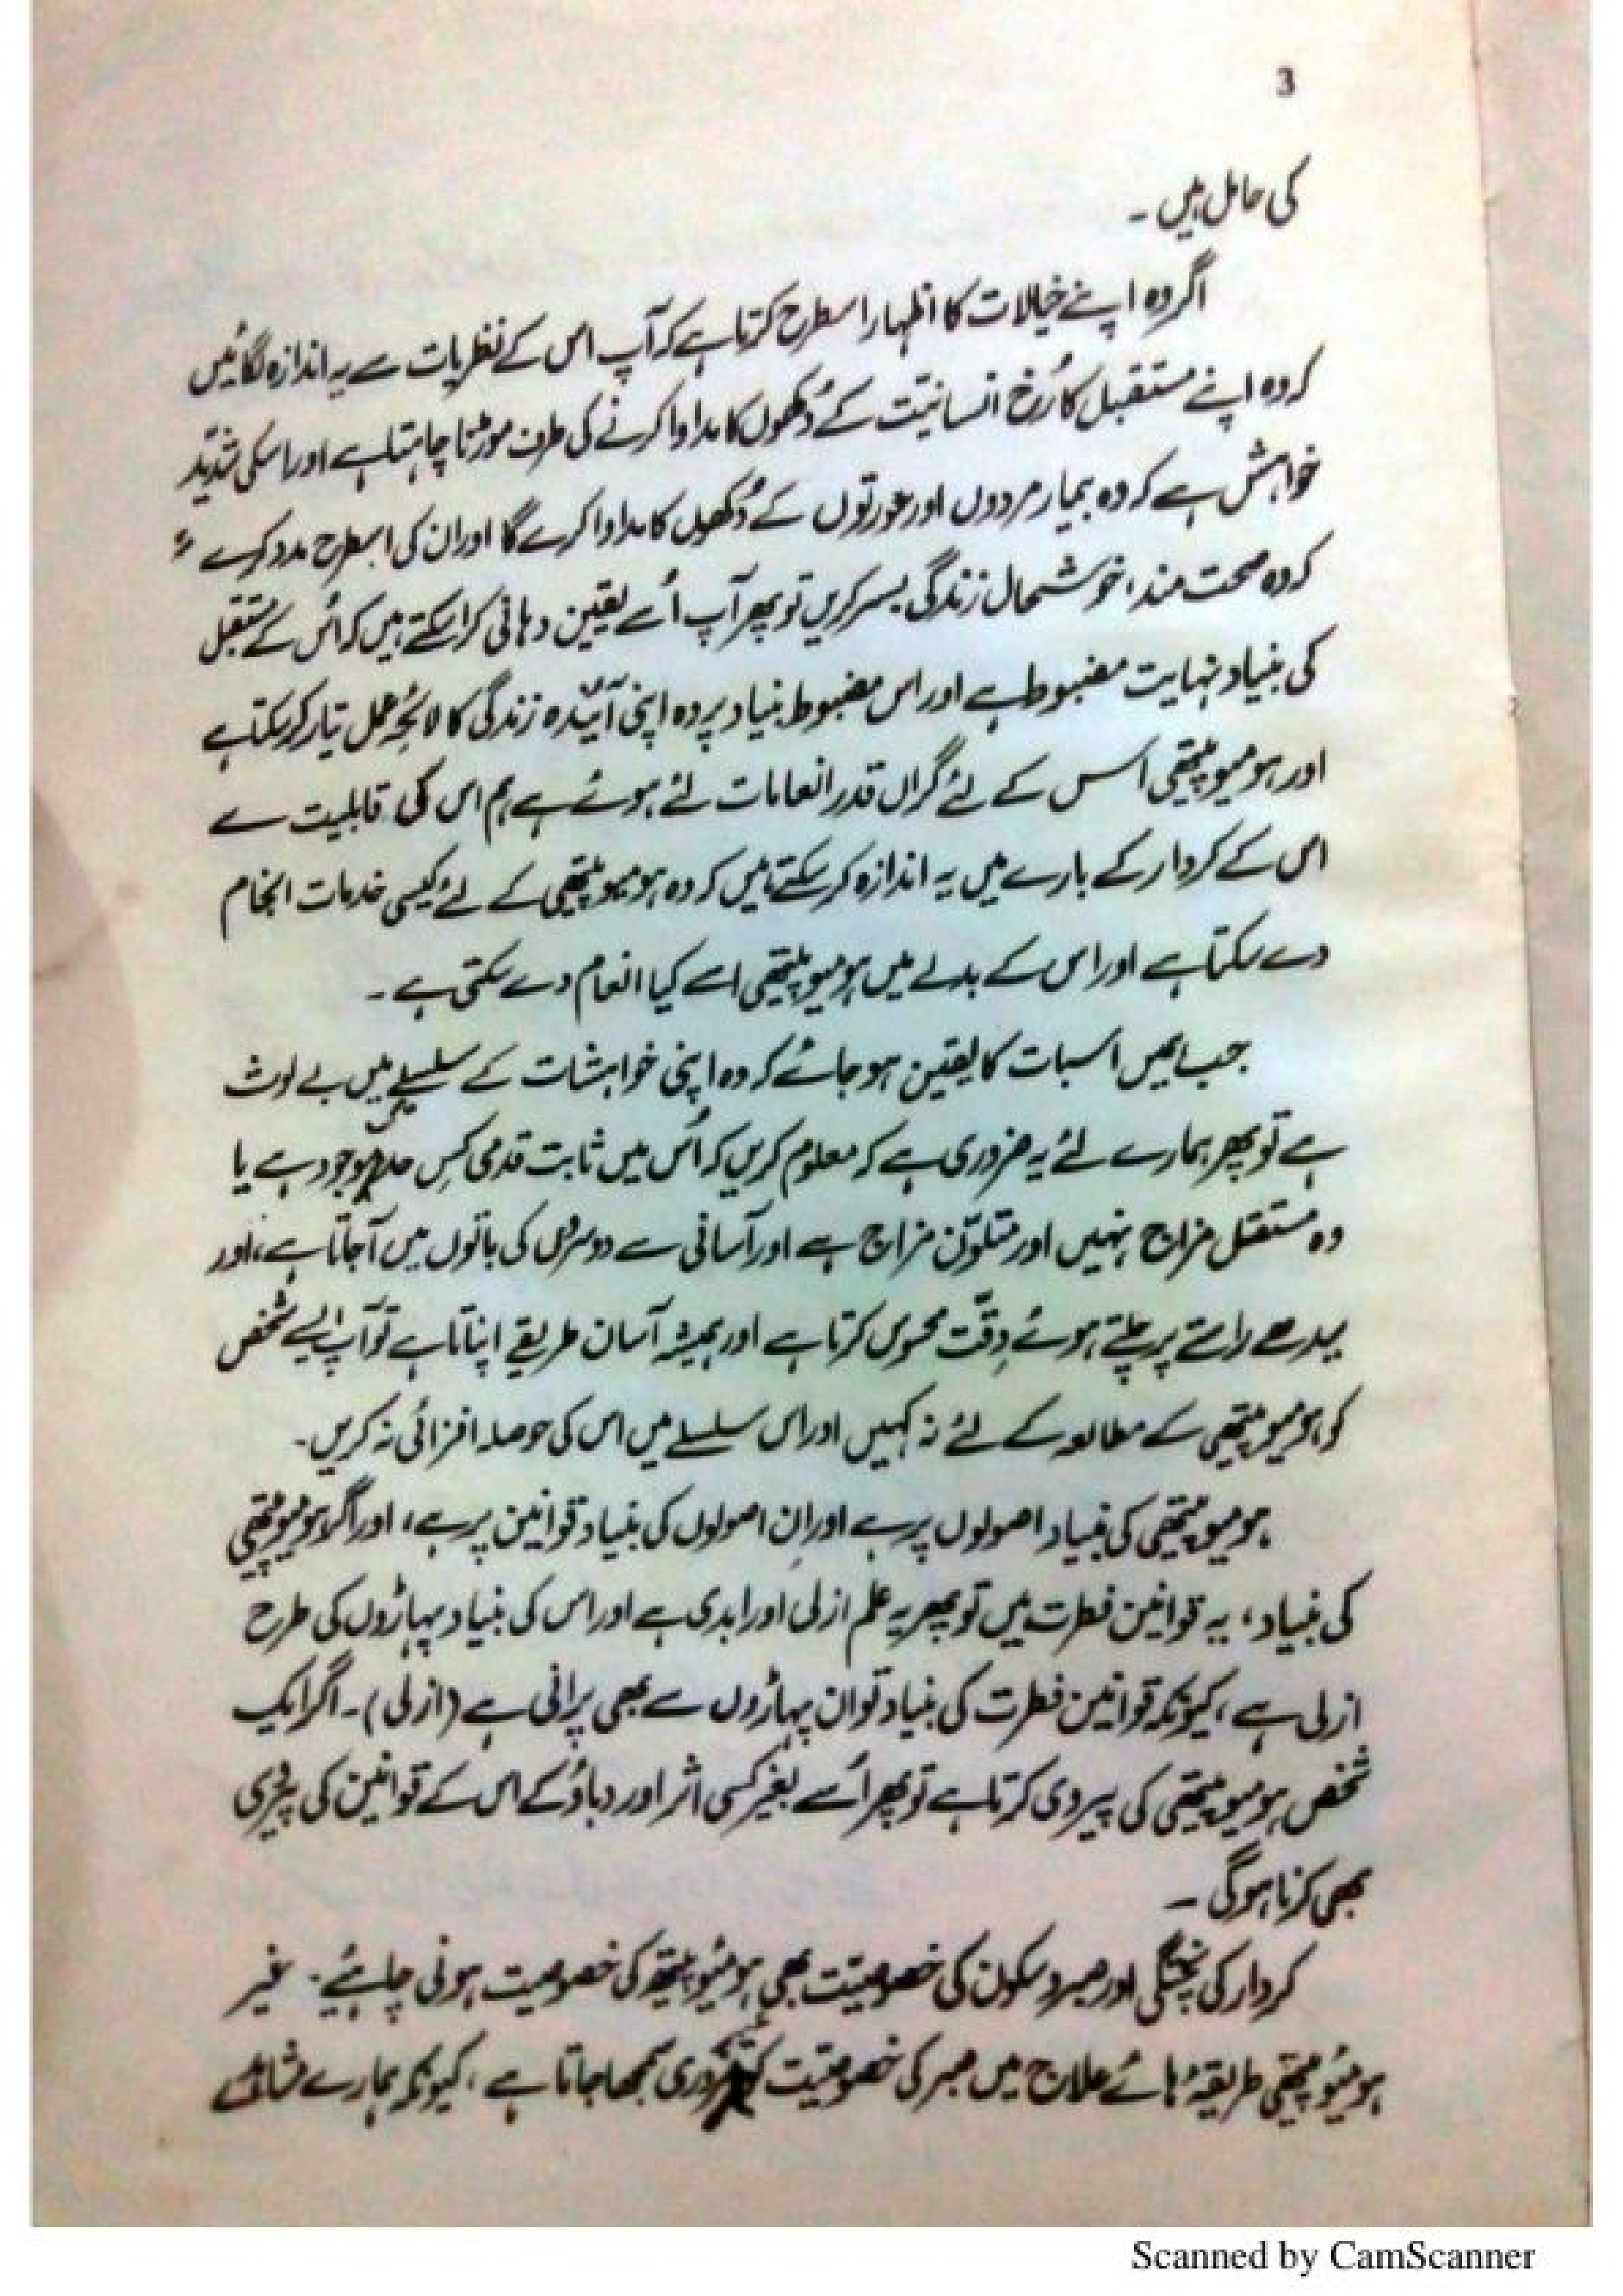 3
کی حامل ہیں ۔
اگر وہ اپنے خیالات کا اظہار اسطرح کرتا ہے کہ آپ اس کے نظریات سے یہ اندازہ لگائیں
کہ وہ اپنے مستقبل کا رُخ انسانیت کے دُکھوں کا مداوا کرنے کی طرف موڑنا چاہتا ہے اور اسکی شدید
خواہش ہے کہ وہ بیمار مردوں اور عورتوں کے دُکھوں کا مداوا کرے گا اور ان کی اسطرح مدد کرے گا
کہ وہ صحت مند، خوشحال زندگی بسر کریں تو پھر آپ اُسے یقین دہانی کرا سکتے ہیں کہ اُس کے مستقبل
کی بنیاد نہایت مضبوط ہے اور اس مضبوط بنیاد پر وہ اپنی آئیندہ زندگی کا لائحہ عمل تیار کر سکتا ہے
اور ہومیوپیتھی اس کے لئے گراں قدر انعامات لئے ہوئے ہے ہم اس کی قابلیت سے
اس کے کردار کے بارے میں یہ اندازہ کر سکتے ہیں کہ وہ ہومیوپیتھی کے لئے کیسی خدمات انجام
دے سکتا ہے اور اس کے بدلے میں ہومیوپیتھی اسے کیا انعام دے سکتی ہے ۔
جب ہمیں اسبات کا یقین ہو جائے کہ وہ اپنی خواہشات کے سلسلے میں بے لوث
ہے تو پھر ہمارے لئے یہ ضروری ہے کہ معلوم کریں کہ اُس میں ثابت قدمی کس حد تک موجود ہے یا
وہ مستقل مزاج نہیں اور متلوّن مزاج ہے اور آسانی سے دوسروں کی باتوں میں آجاتا ہے، اور
سیدھے راستے پر چلتے ہوئے دِقّت محسوس کرتا ہے اور ہمیشہ آسان طریقے اپناتا ہے تو آپ ایسے شخص
کو ہومیوپیتھی کے مطالعہ کے لئے نہ کہیں اور اس سلسلے میں اس کی حوصلہ افزائی نہ کریں۔
ہومیوپیتھی کی بنیاد اصولوں پر ہے اور اِن اصولوں کی بنیاد قوانین پر ہے، اور اگر ہومیوپیتھی
کی بنیاد، یہ قوانین فطرت ہیں تو پھر یہ علم ازلی اور ابدی ہے اور اس کی بنیاد پہاڑوں کی طرح
ازلی ہے، کیونکہ قوانین فطرت کی بنیاد تو ان پہاڑوں سے بھی پرانی ہے (ازلی)۔ اگر ایک
شخص ہومیوپیتھی کی پیروی کرتا ہے تو پھر اُسے بغیر کسی اثر اور دباؤ کے اس کے قوانین کی پیروی
بھی کرنا ہوگی ۔
کردار کی پختگی اور صبر و سکون کی خصوصیّت بھی ہومیوپیتھ کی خصوصیت ہونی چاہیئے ۔ غیر
ہومیوپیتھی طریقۂ ہائے علاج میں صبر کی خصوصیّت کو ضروری سمجھا جاتا ہے، کیونکہ ہمارے
Scanned by CamScanner